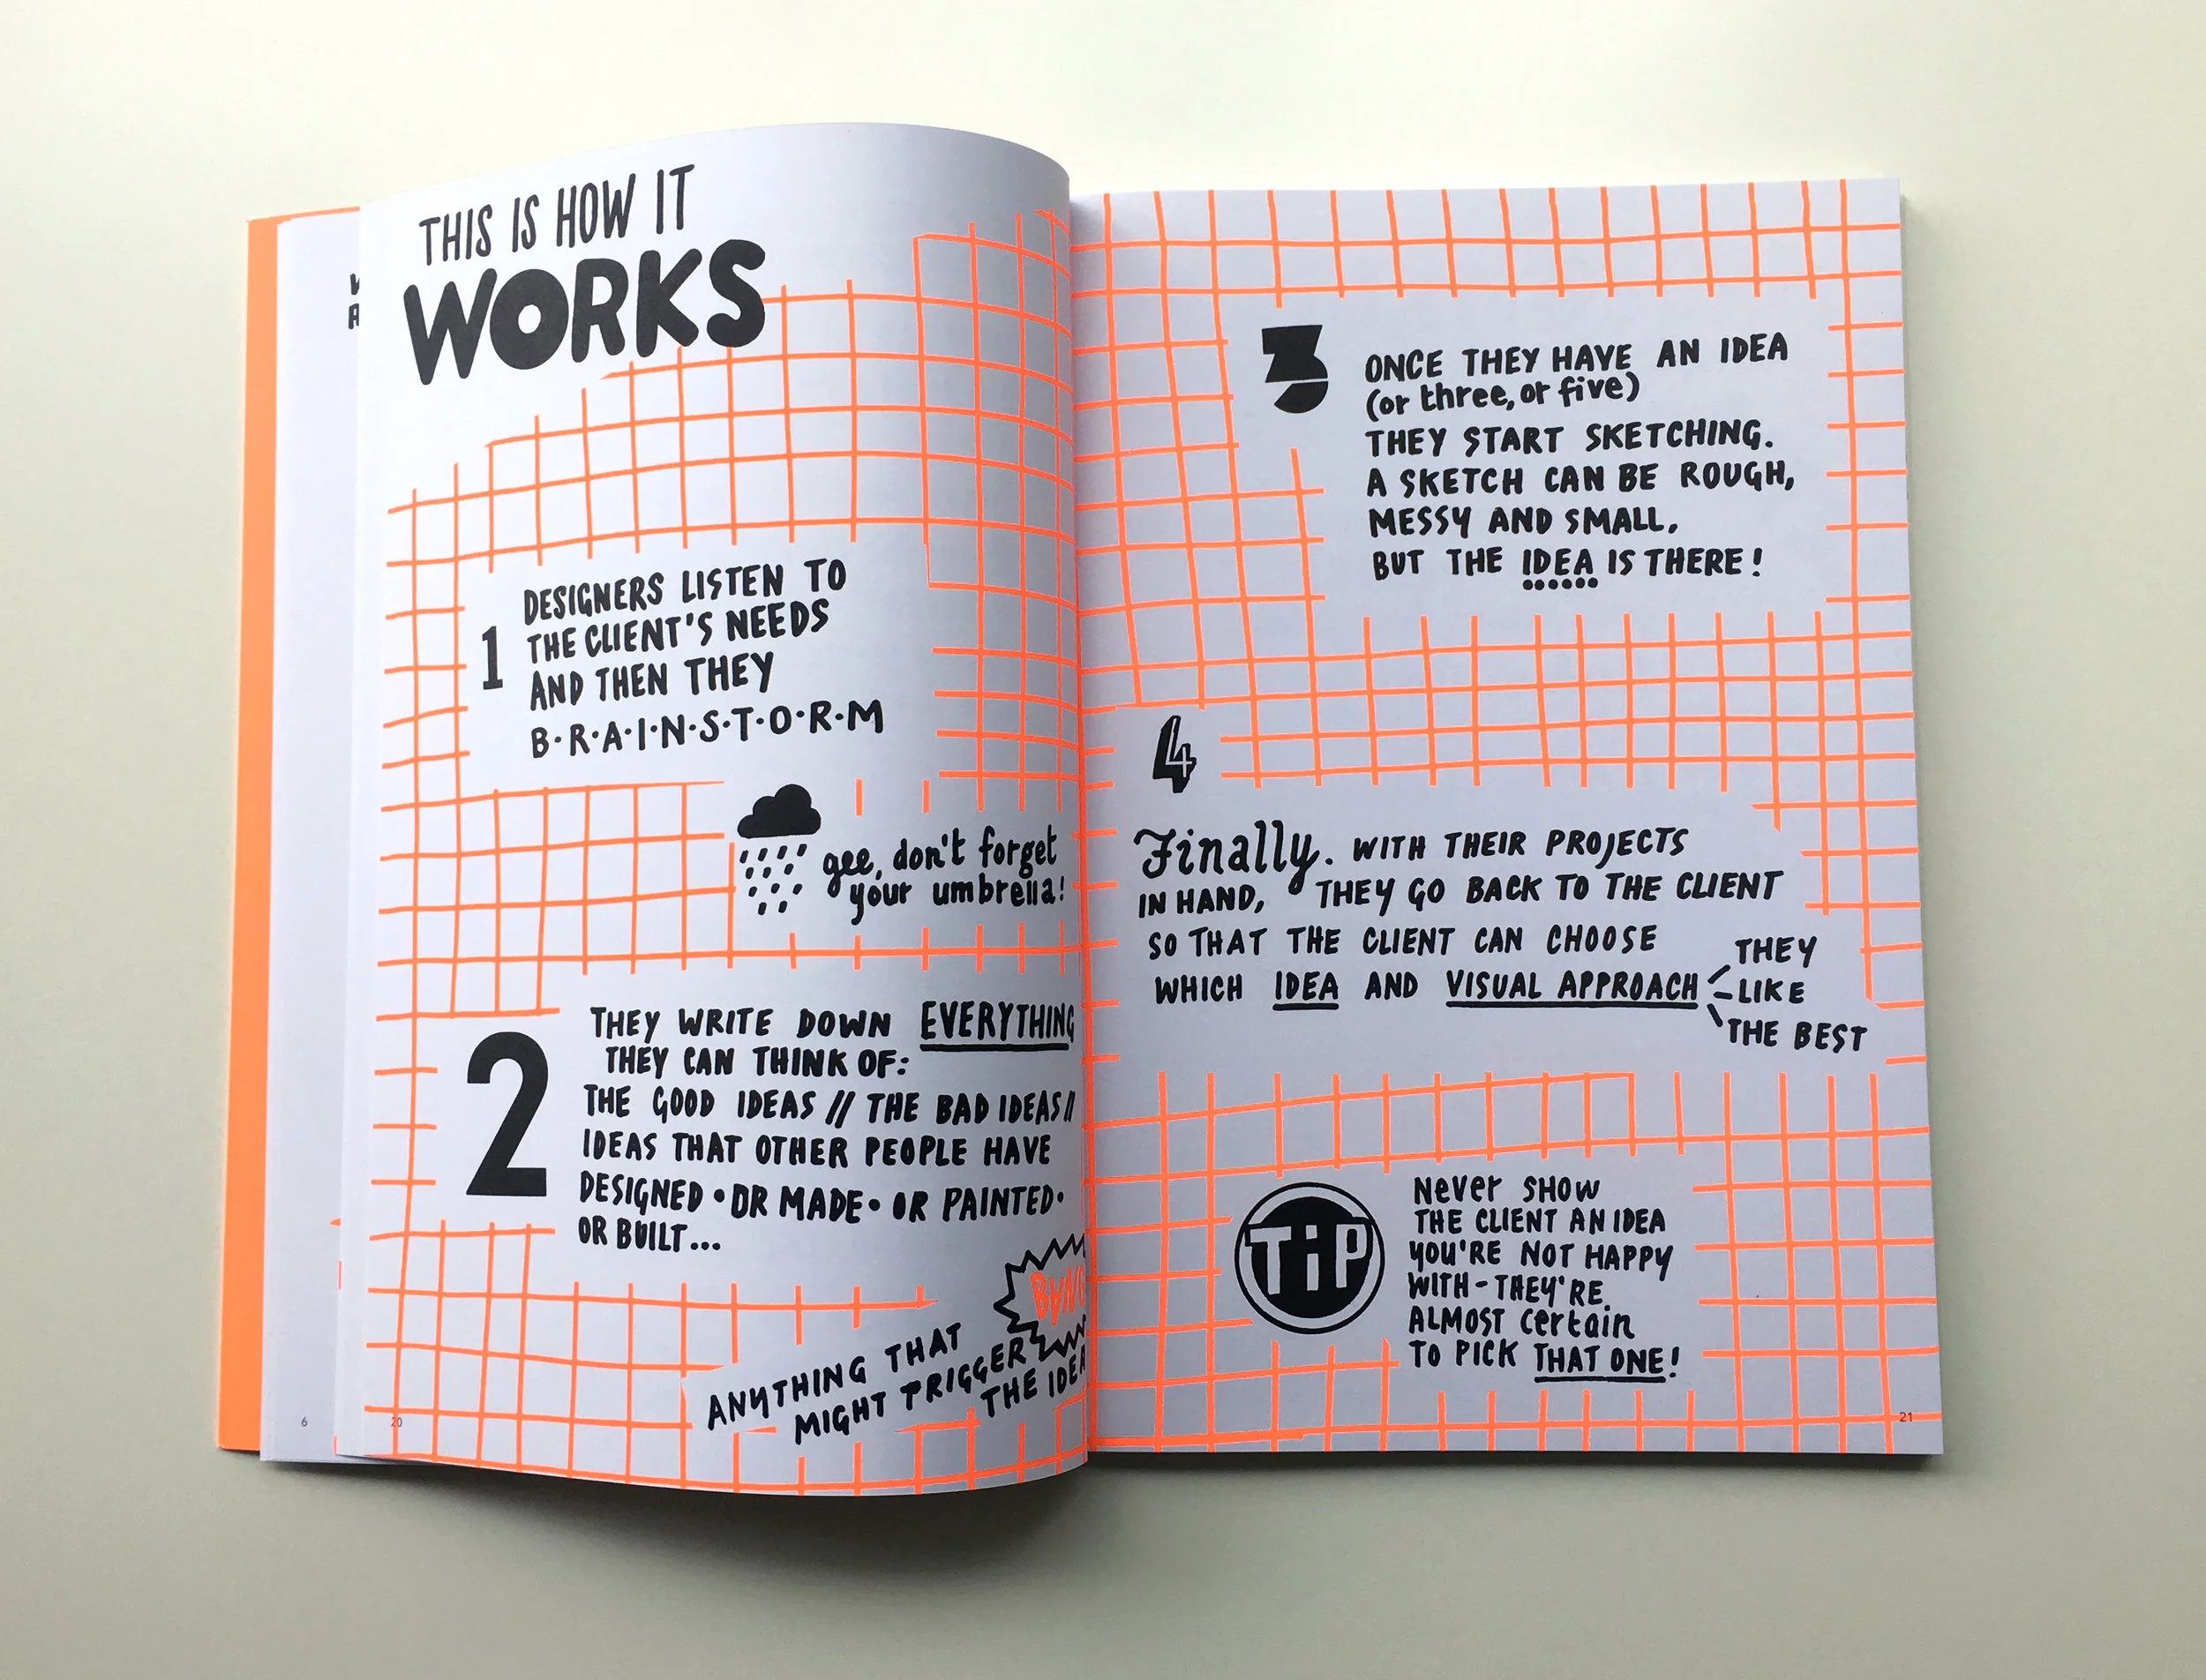 THIS IS HOW IT
WORKS
1
DESIGNERS LISTEN TO
THE CLIENT'S NEEDS
AND THEN THEY
B·R·A·I·N·S·T·O·R·M
gee, don't forget
your umbrella!
2
THEY WRITE DOWN EVERYTHING
THEY CAN THINK OF:
THE GOOD IDEAS // THE BAD IDEAS //
IDEAS THAT OTHER PEOPLE HAVE
DESIGNED • OR MADE • OR PAINTED •
OR BUILT...
BANG
ANYTHING THAT
MIGHT TRIGGER
THE IDEA
6
20
3
ONCE THEY HAVE AN IDEA
(or three, or five)
THEY START SKETCHING.
A SKETCH CAN BE ROUGH,
MESSY AND SMALL.
BUT THE IDEA IS THERE!
4
Finally. WITH THEIR PROJECTS
IN HAND, THEY GO BACK TO THE CLIENT
SO THAT THE CLIENT CAN CHOOSE
WHICH IDEA AND VISUAL APPROACH
THEY
LIKE
THE BEST
TIP
Never SHOW
THE CLIENT AN IDEA
YOU'RE NOT HAPPY
WITH - THEY'RE
ALMOST certain
TO PICK THAT ONE!
21